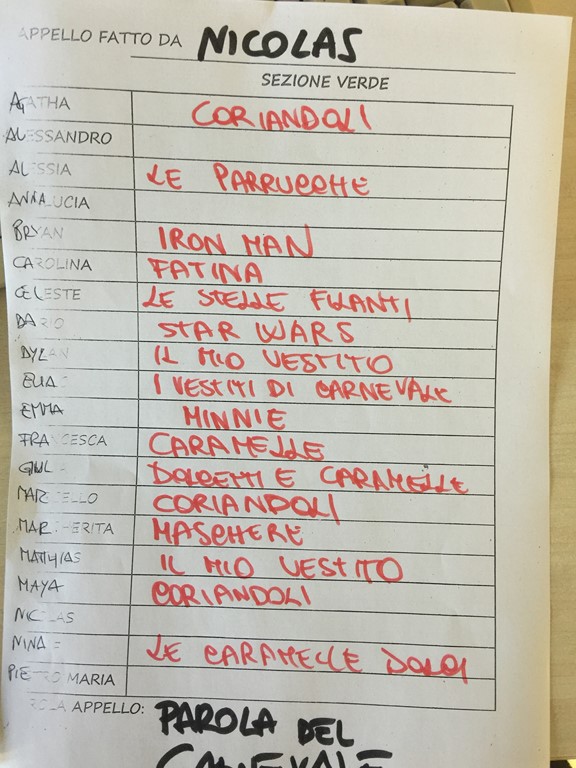 APPELLO FATTO DA NICOLAS
SEZIONE VERDE
AGATHA CORIANDOLI
ALESSANDRO
ALESSIA LE PARRUCCHE
ANNALUCIA
BRYAN IRON MAN
CAROLINA FATINA
CELESTE LE STELLE FILANTI
DARIO STAR WARS
DYLAN IL MIO VESTITO
ELIA I VESTITI DI CARNEVALE
EMMA MINNIE
FRANCESCA CARAMELLE
DOLCETTI E CARAMELLE
MARCELLO CORIANDOLI
MARGHERITA MASCHERE
MATTHIAS IL MIO VESTITO
MAYA CORIANDOLI
NICOLAS
LE CARAMELLE DOLCI
PIETRO MARIA
PAROLA APPELLO: PAROLA DEL
CARNEVALE